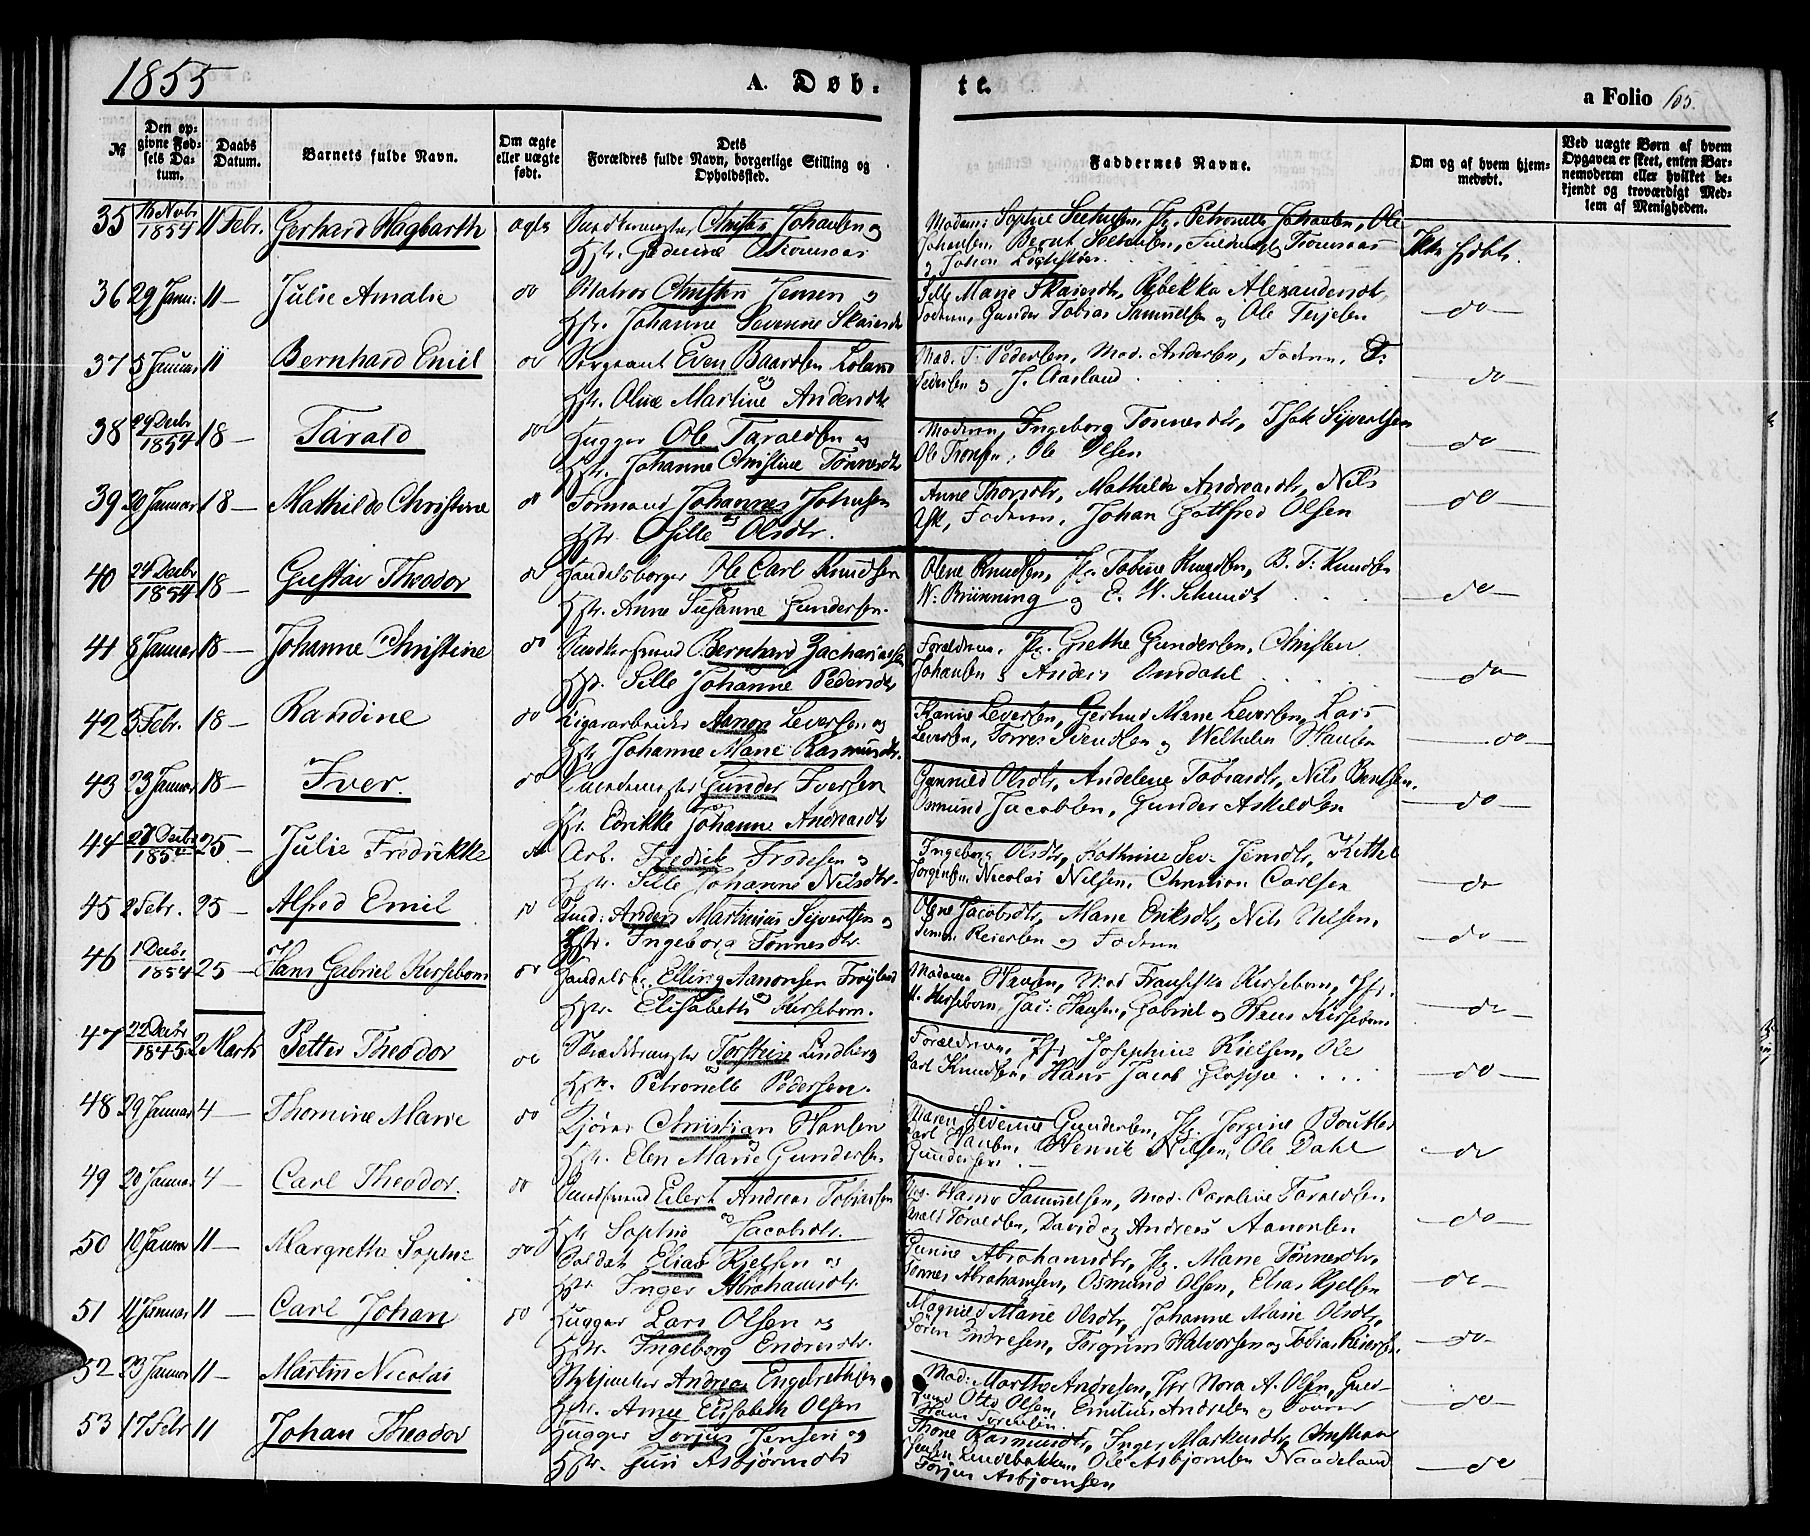 1855
A. Døb-
te.
a Folio 105.
№
Den op-
givne Fød-
sels Da-
tum.
Daabs
Datum.
Barnets fulde Navn.
Om ægte
eller uægte
født.
Dets
Forældres fulde Navn, borgerlige Stilling og
Opholdssted.
Faddernes Navne.
Om og af hvem hjem-
medøbt.
Ved uægte Børn af hvem
Opgaven er skeet, enten Bar-
nemoderen eller hvilket be-
kjendt og troværdigt Med-
lem af Menigheden.
35 Novbr 1854 11 Febr. Gerhard Hagbarth ægte Christen Johansen og
Hstr.
Madam Sophie Petronelle Johansen, Ole
Johansen, Bernt
Ikke hjdbt.
36 29 Janu: 11 — Julie Amalie do Matros Christen Jensen og
Hstr. Johanne Severine
Sille Marie Rebekka Alexandersdt,
Faderen, Gunder Tobias Samuelsen og Ole Terjesen
do
37 5 Januar 11 Bernhard Emil do Sergeant Even Baardsen
og
Hstr. Oline Martine Andersdtr
Mad. T. Pedersen, Mad. Andersen, Faderen, T.
Pedersen og J. Aarland
do
38 29 Decbr 1854 18 — Tarald do Hugger Ole Taraldsen og
Hstr. Johanne Christine Tønnesdtr
Moderen, Ingeborg Tønnesdtr, Isak Syvertsen
Ole Olsen
do
39 20 Januar 18 — Mathilde Christine do Formand Johannes Johnsen
og
Hstr. Sille Olsdtr.
Anne Thorsdtr, Mathilde Andreasdtr, Nils
Ask, Faderen, Johan Gottfred Olsen
do
40 24 Decbr 1854 18 — Gustav Theodor do Handelsborger Ole Carl Knudsen
Hstr. Anne Susanne Gundersen.
Olene Knudsen, Jfr. Tobine Knudsen, B. T. Knudsen
N. Brünning og E. W. Schmidt
do
41 8 Januar 18 — Johanne Christine do Bernhard Zachariassen
Hstr. Sille Johanne Pedersdtr
Forældrene, Jfr. Grethe Gundersen, Christen
Johansen & Anders Omdahl
do
42 3 Febr. 18 — Randine do Cigararbeider Aanon Leversen og
Hstr. Johanne Marie Rasmusdtr.
Leversen, Gertrud Marie Leversen, Lars
Leversen, Torres Svendsen og Wilhelm Hansen
do
43 23 Januar 18 — Iver. do Gunder Iversen
og
Hstr. Edrikke Johanne Andreasdtr
Gunnild Olsdtr, Andelene Tobiasdtr, Nils Bentsen,
Osmund Jacobsen, Gunder Askildsen
do
44 27 Decbr 25 — Julie Fredrikke do Arb. Fredrik Frodesen og
Hstr. Sille Johanne Nilsdtr.
Ingeborg Olsdtr, Kathrine Sev. Jensdtr, Kittel
Jørgensen, Nicolai Nilsen, Christian Carlsen
do
45 2 Febr. 25 — Alfred Emil do Anders Martinius Syvertsen og
Hstr. Ingeborg Tønnesdtr.
Olene Jacobsdtr, Marie Eriksdtr, Nils Nilsen,
Reiersen og Faderen
do
46 1 Decbr 1854 25 — Hans Gabriel Kirsebom do Handelsb. Elling Aanonsen Frøyland
og
Hstr. Elisabeth Kirsebom.
Madame Hansen, Mad Fransiska Kirsebom, Jfr.
M. Kirsebom, Jac: Hansen, Gabriel og Hans Kirsebom
do
47 22 Decbr 1845. 2 Marts Petter Theodor do Skræddermester Torstein Lindberg
og
Hstr. Petronelle Pedersen.
Forældrene, Jfr Josephine Nielsen, Ole
Carl Knudsen, Hans Jacob
do
48 29 Januar 4 — Thomine Marie do Kjører Christian Hansen
og
Hstr. Elen Marie Gundersen
Maren Severine Gundersen, Jfr. Jørgine
Carl Hansen, Henrik Nilsen, Ole Dahl
Gundersen
do
49 20 Januar 4 — Carl Theodor. do Eilert Andreas Tobiassen
og
Hstr Sophie Jacobsdtr.
Samuelsen, Mad. Caroline Taraldsen
Taraldsen, David og Andreas Aanonsen
do
50 10 Januar 11 — Margrethe Sophie do Soldat Elias Kjelsen og
Hstr. Inger Abrahamsdtr.
Gunine Abrahamsdtr, Jfr. Marie Tønnesdtr,
Tønnes Abrahamsen, Osmund Olsen, Elias Kjelsen
do
51 11 Januar 11 — Carl Johan do Hugger Lars Olsen og
Hstr. Ingeborg Endresdtr.
Magnild Marie Olsdtr, Johanne Marie Olsdtr,
Søren Endresen, Torgrim Halvorsen og Tobias Reiersen
do
52 23 Januar 11 — Martin Nicolai Andreas Engebrethsen
Hstr. Anne Elisabeth Olsen
Mad: Marthe Andresen, Jfr Nora A. Olsen,
Otto Olsen, Emilius Andresen og
do
53 17 Febr 11 Johan Theodor Hugger Torjus Jensen og
Hstr. Guri Asbjørnsdtr
Thone Rasmusdtr, Inger Markusdtr, Christian
Lindebakken, Ole Asbjørnsen Naadeland
Torjus Asbjørnsen
do